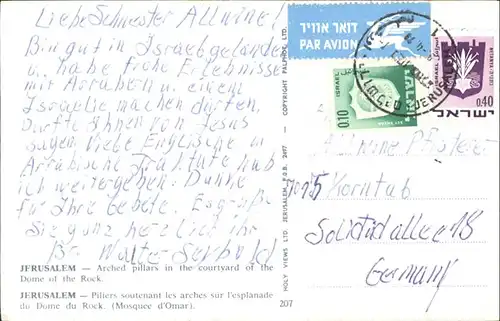 Liebe Schwester Allwine!
Bin gut in Israel gelandet
u. habe frohe Erlebnisse
mit Arabern u. einem
Israelie machen dürfen.
Durfte Ihnen von Jesus
sagen. Viele Englische u.
Arabische Traktate hab
ich weitergeben. Danke
für Ihre Gebete. Es grüße
Sie ganz herzlich Ihr
Br. Walter
JERUSALEM — Arched pillars in the courtyard of the
Dome of the Rock.
JERUSALEM — Piliers soutenant les arches sur l'esplanade
du Dome du Rock. (Mosquee d'Omar).
207
HOLY VIEWS LTD. JERUSALEM, P.O.B. 2417 — COPYRIGHT PALPHOT LTD.
דואר אוויר
PAR AVION
JERUSALEM
ISRAEL
0.10
ישראל
ISRAEL
0.40
ישראל
Allwine
7015 Korntal
Solitüdallee 18
Germany